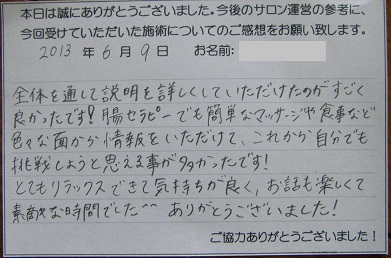 本日は誠にありがとうございました。今後のサロン運営の参考に、
今回受けていただいた施術についてのご感想をお願い致します。
2013年6月9日 お名前:
全体を通して説明を詳しくしていただけたのがすごく
良かったです!腸セラピーでも簡単なマッサージや食事など
色々な面から情報をいただけて、これから自分でも
挑戦しようと思える事が多かったです!
とてもリラックスできて気持ちが良く、お話も楽しくて
素敵な時間でした^^ ありがとうございました!
ご協力ありがとうございました!